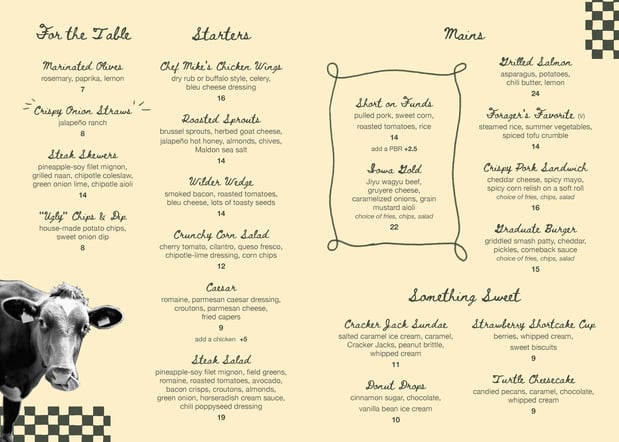 For the Table
Marinated Olives
rosemary, paprika, lemon
7
Crispy Onion Straws
jalapeño ranch
8
Steak Skewers
pineapple-soy filet mignon,
grilled naan, chipotle coleslaw,
green onion lime, chipotle aioli
14
"Ugly" Chips & Dip
house-made potato chips,
sweet onion dip
8
Starters
Chef Mike's Chicken Wings
dry rub or buffalo style, celery,
bleu cheese dressing
16
Roasted Sprouts
brussel sprouts, herbed goat cheese,
jalapeño hot honey, almonds, chives,
Maldon sea salt
14
Wilder Wedge
smoked bacon, roasted tomatoes,
bleu cheese, lots of toasty seeds
14
Crunchy Corn Salad
cherry tomato, cilantro, queso fresco,
chipotle-lime dressing, corn chips
12
Caesar
romaine, parmesan caesar dressing,
croutons, parmesan cheese,
fried capers
9
add a chicken +5
Steak Salad
pineapple-soy filet mignon, field greens,
romaine, roasted tomatoes, avocado,
bacon crisps, croutons, almonds,
green onion, horseradish cream sauce,
chili poppyseed dressing
19
Mains
Short on Funds
pulled pork, sweet corn,
roasted tomatoes, rice
14
add a PBR +2.5
Iowa Gold
Jiyu wagyu beef,
gruyere cheese,
caramelized onions, grain
mustard aioli
choice of fries, chips, salad
22
Grilled Salmon
asparagus, potatoes,
chili butter, lemon
24
Forager's Favorite (V)
steamed rice, summer vegetables,
spiced tofu crumble
14
Crispy Pork Sandwich
cheddar cheese, spicy mayo,
spicy corn relish on a soft roll
choice of fries, chips, salad
16
Graduate Burger
griddled smash patty, cheddar,
pickles, comeback sauce
choice of fries, chips, salad
15
Something Sweet
Cracker Jack Sundae
salted caramel ice cream, caramel,
Cracker Jacks, peanut brittle,
whipped cream
11
Donut Drops
cinnamon sugar, chocolate,
vanilla bean ice cream
10
Strawberry Shortcake Cup
berries, whipped cream,
sweet biscuits
9
Turtle Cheesecake
candied pecans, caramel, chocolate,
whipped cream
9